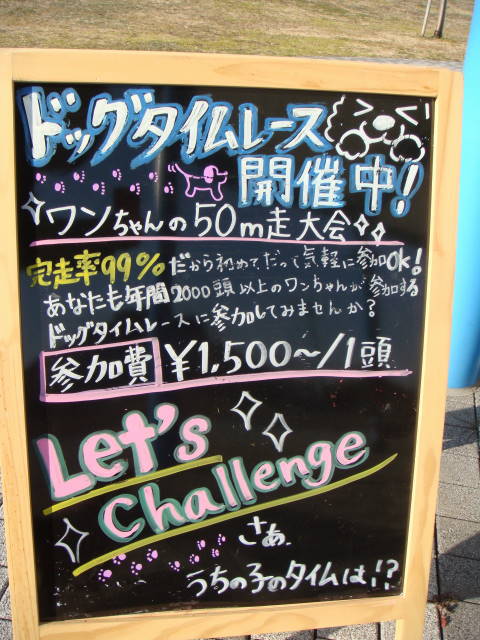 ドッグタイムレース
開催中!
ワンちゃんの50m走大会
完走率99%だから初めてだって気軽に参加OK!
あなたも年間2000頭以上のワンちゃんが参加する
ドッグタイムレースに参加してみませんか?
参加費 ¥1,500〜/1頭
Let's
Challenge
さあ、
うちの子のタイムは!?